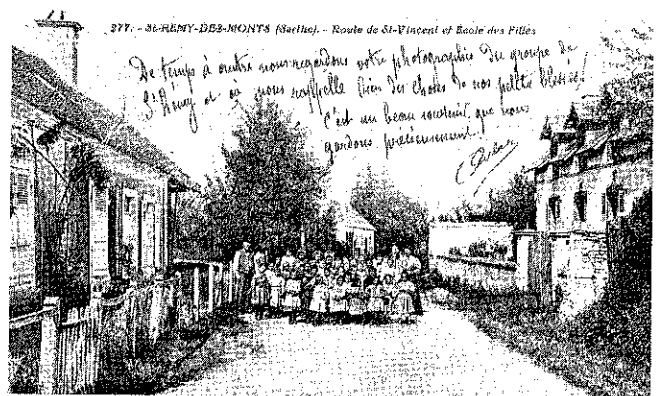 377. - St-REMY-DES-MONTS (Sarthe). - Route de St-Vincent et École des Filles
De temps à autre nous regardons votre photographie du groupe de
St Rémy et ça nous rappelle bien des choses de nos petits blessés!
C'est un beau souvenir que nous
gardons précieusement.